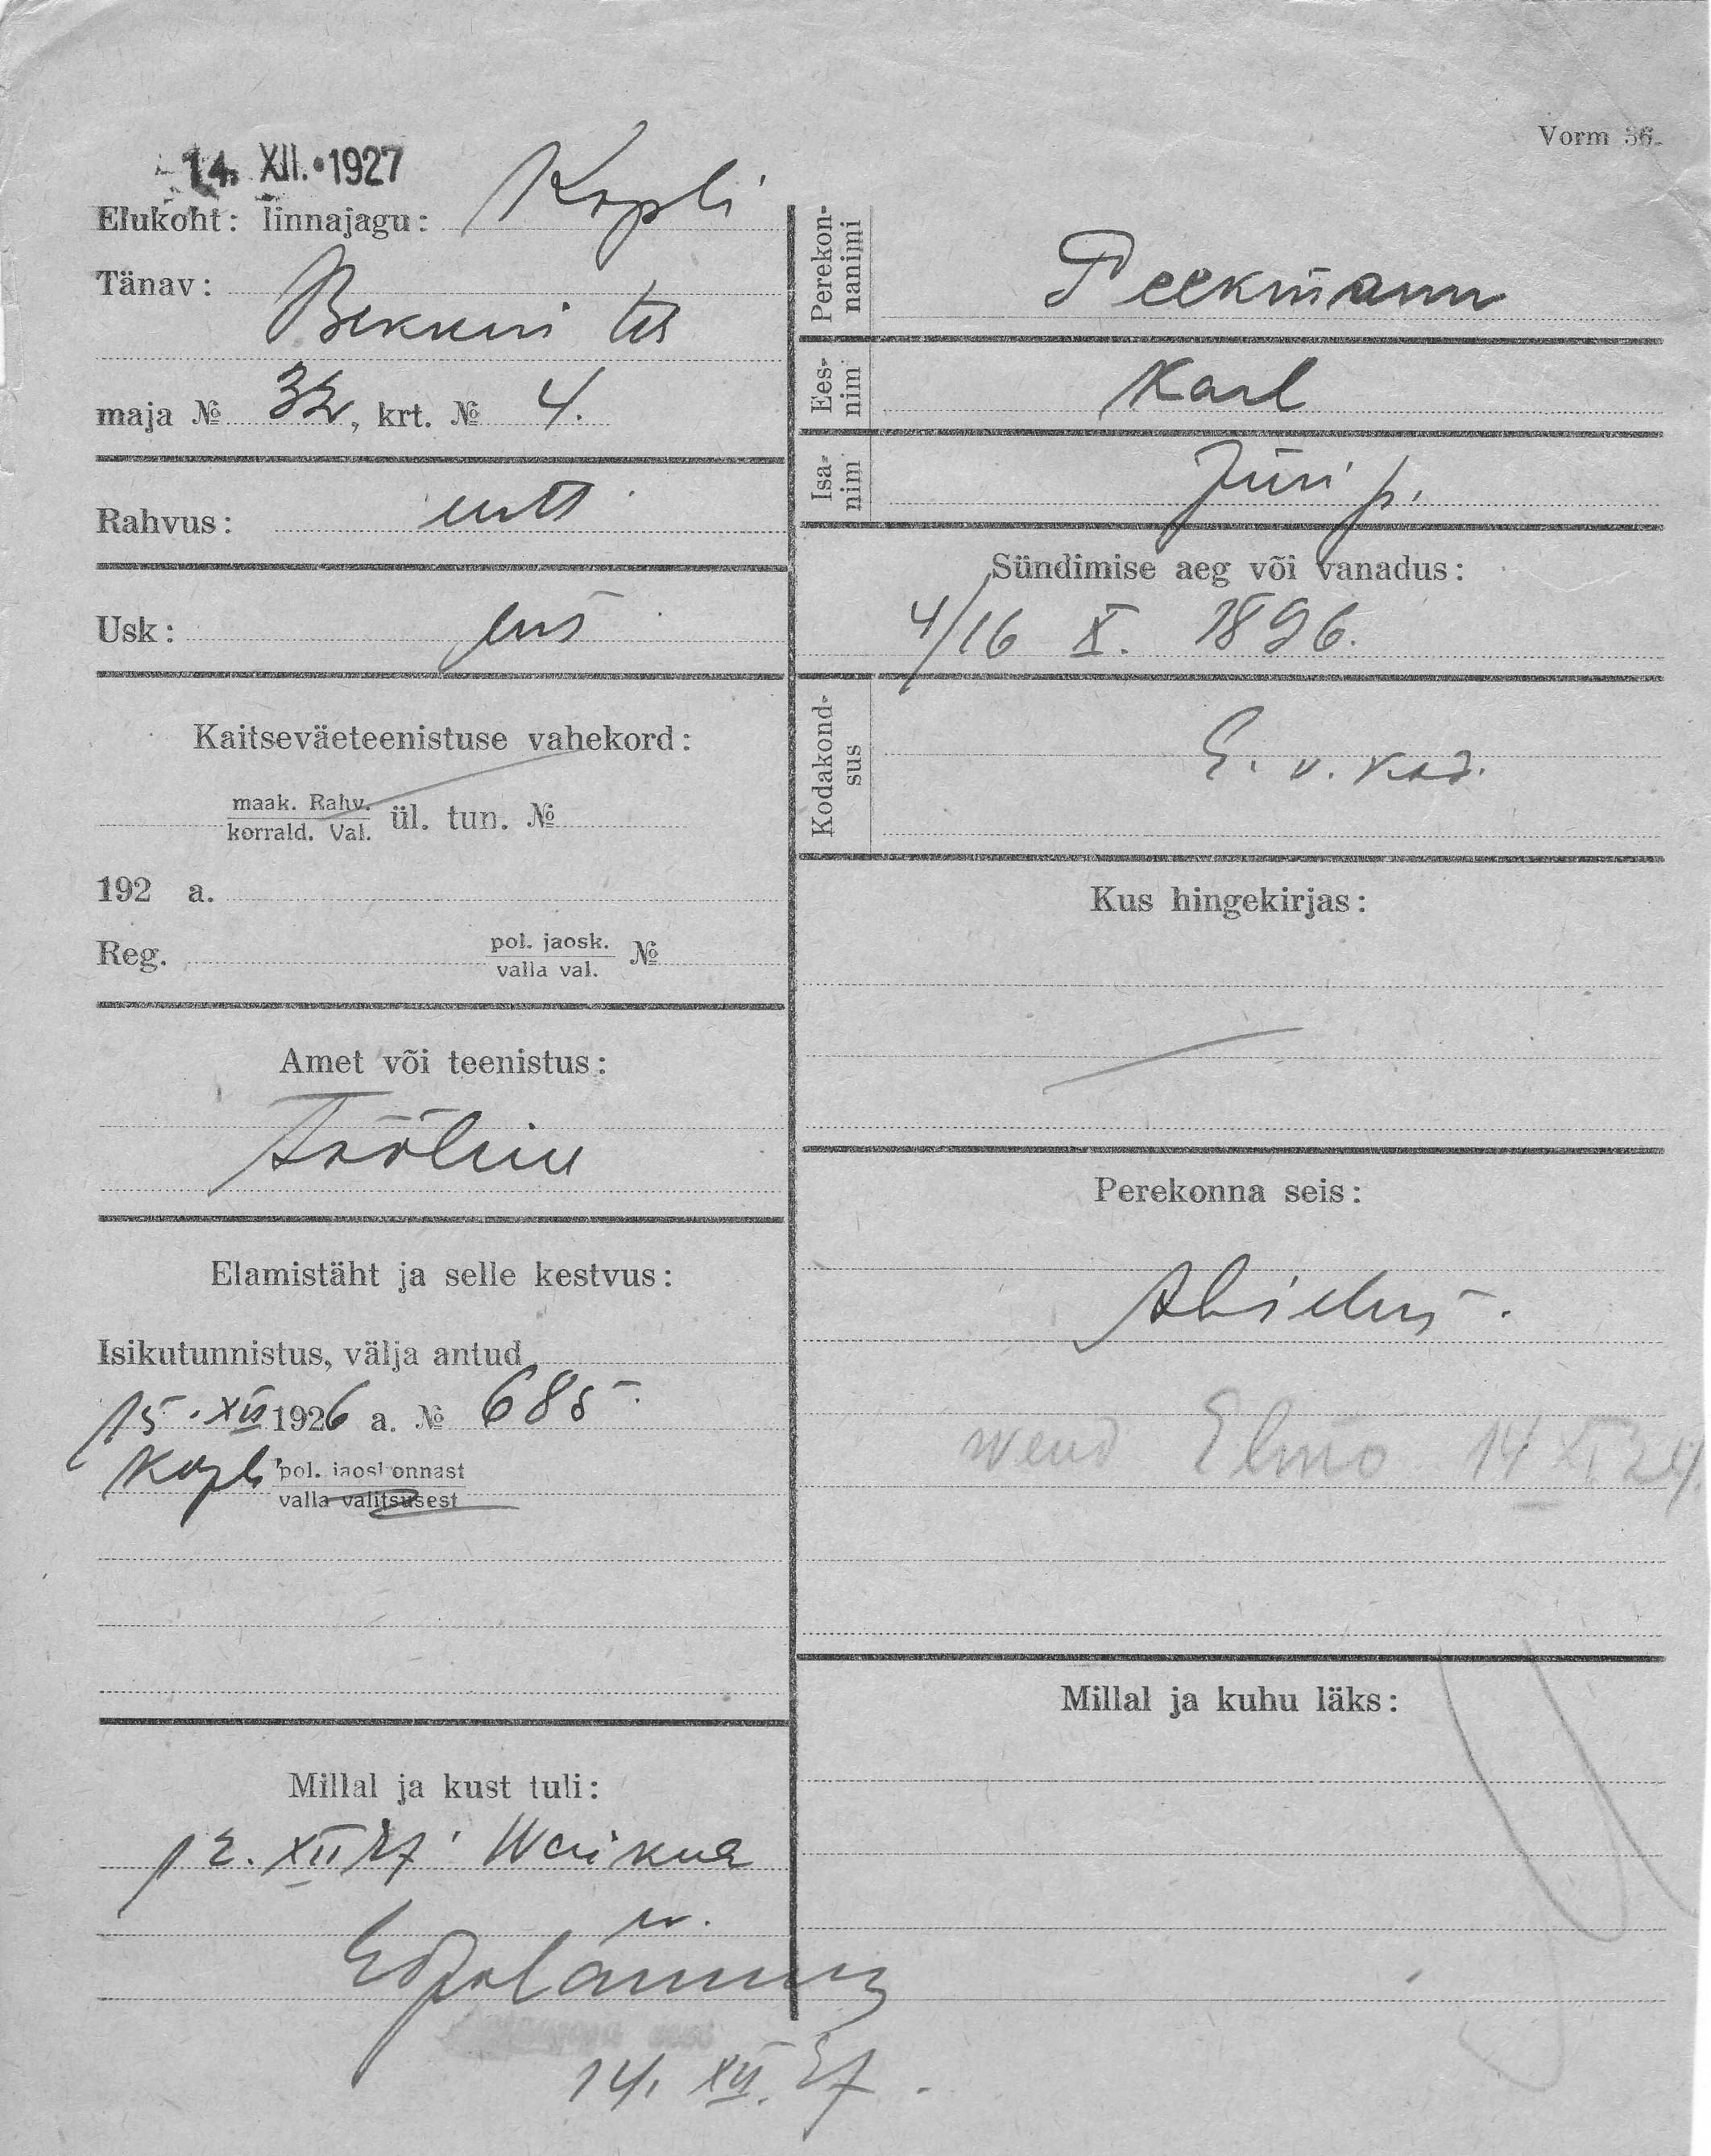 Vorm 36.
14. XII. 1927
Elukoht: linnajagu: Kopli
Tänav:
Bekkeri teh
maja № 32, krt. № 4.
Rahvus: eesti
Usk: luts
Kaitseväeteenistuse vahekord:
maak. Rahv.
korrald. Val. ül. tun. №
192 a.
Reg. pol. jaosk.
valla val. №
Amet või teenistus:
Tööline
Elamistäht ja selle kestvus:
Isikutunnistus, välja antud
15. XII 1926 a. № 685
Kopli pol. jaoskonnast
valla valitsusest
Millal ja kust tuli:
12. XII 27 Waikna
14. XII. 27.
Perekon-
nanimi
Peekmann
Ees-
nim
Karl
Isa-
nim
Jüri p.
Sündimise aeg või vanadus:
4/16 X. 1896.
Kodakond-
sus
E. v. kod.
Kus hingekirjas:
Perekonna seis:
Abielus.
wend Elmo 14 XI 24.
Millal ja kuhu läks: